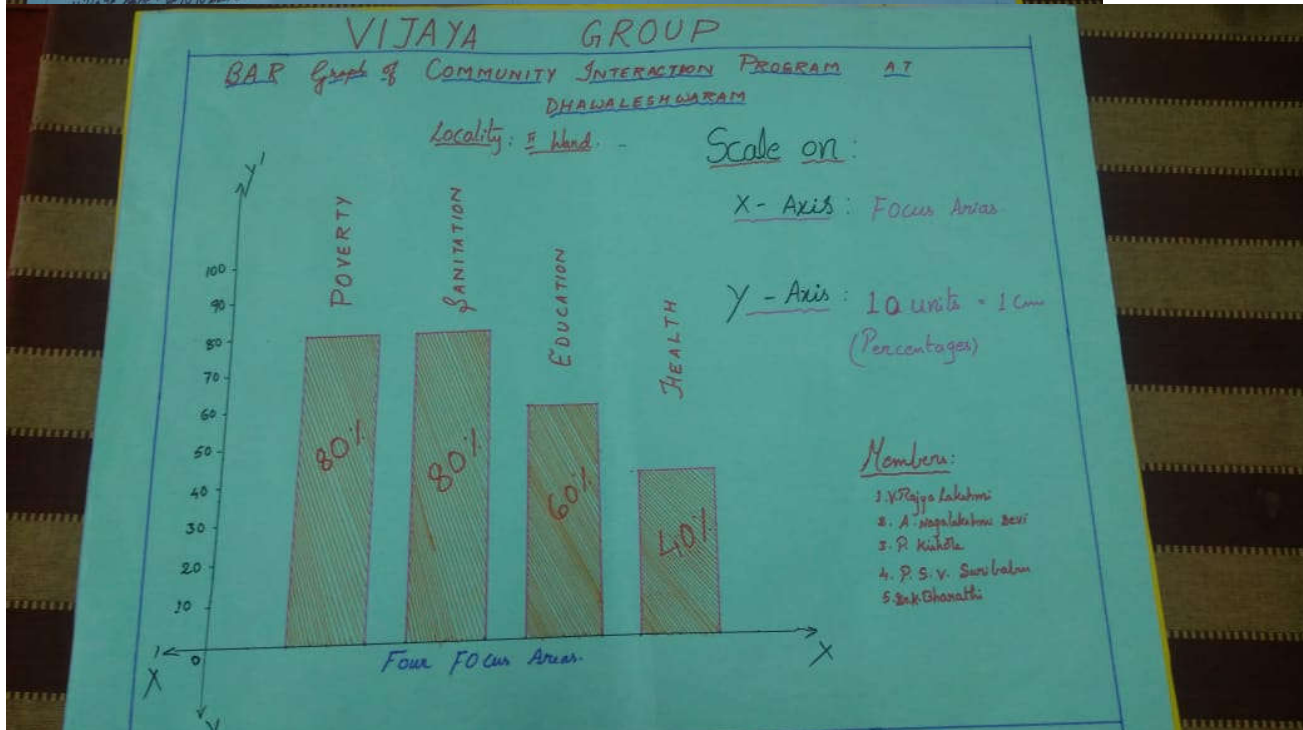 VIJAYA GROUP
BAR Graph of COMMUNITY INTERACTION PROGRAM AT
DHAWALESHWARAM
Locality: II Ward.
Scale on:
X- Axis: Focus Arias
Y - Axis: 10 units = 1 cm
(Percentages)
Y'
100
90
80
70
60
50
40
30
20
10
0
POVERTY
SANITATION
EDUCATION
HEALTH
80%
80%
60%
40%
X
Four FOcus Areas.
X
Members:
1. V. Rajya Lakshmi
2. A. Nagalakshmi Devi
3. P. Kishore
4. P. S. V. Suribabu
5. Bharathi